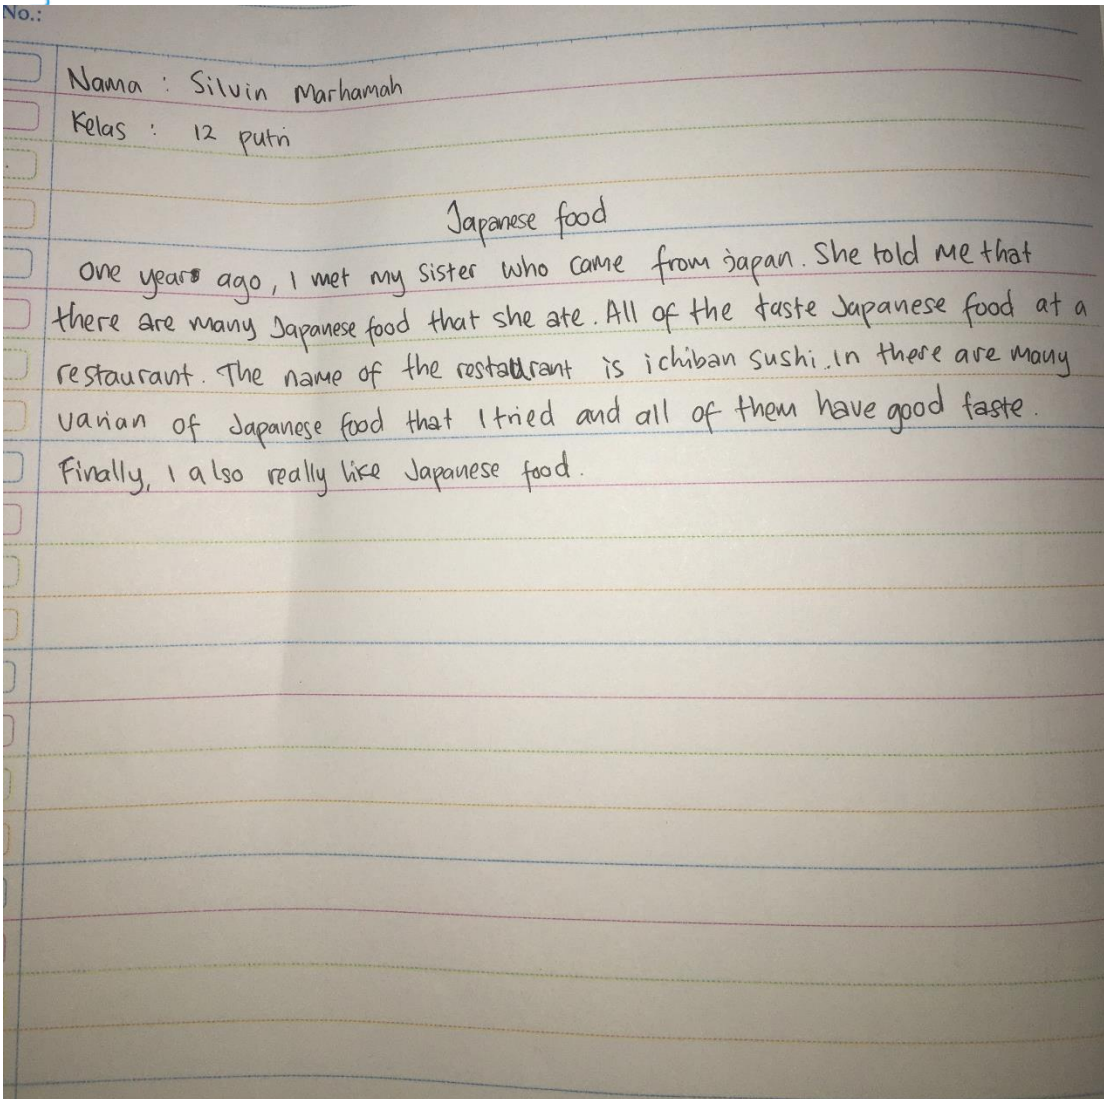 No.:
Nama : Silvin Marhamah
Kelas : 12 putri
Japanese food
One years ago, I met my sister who came from japan. She told me that
there are many Japanese food that she ate. All of the taste Japanese food at a
restaurant. The name of the restaurant is ichiban sushi. in there are many
varian of Japanese food that I tried and all of them have good taste.
Finally, I also really like Japanese food.